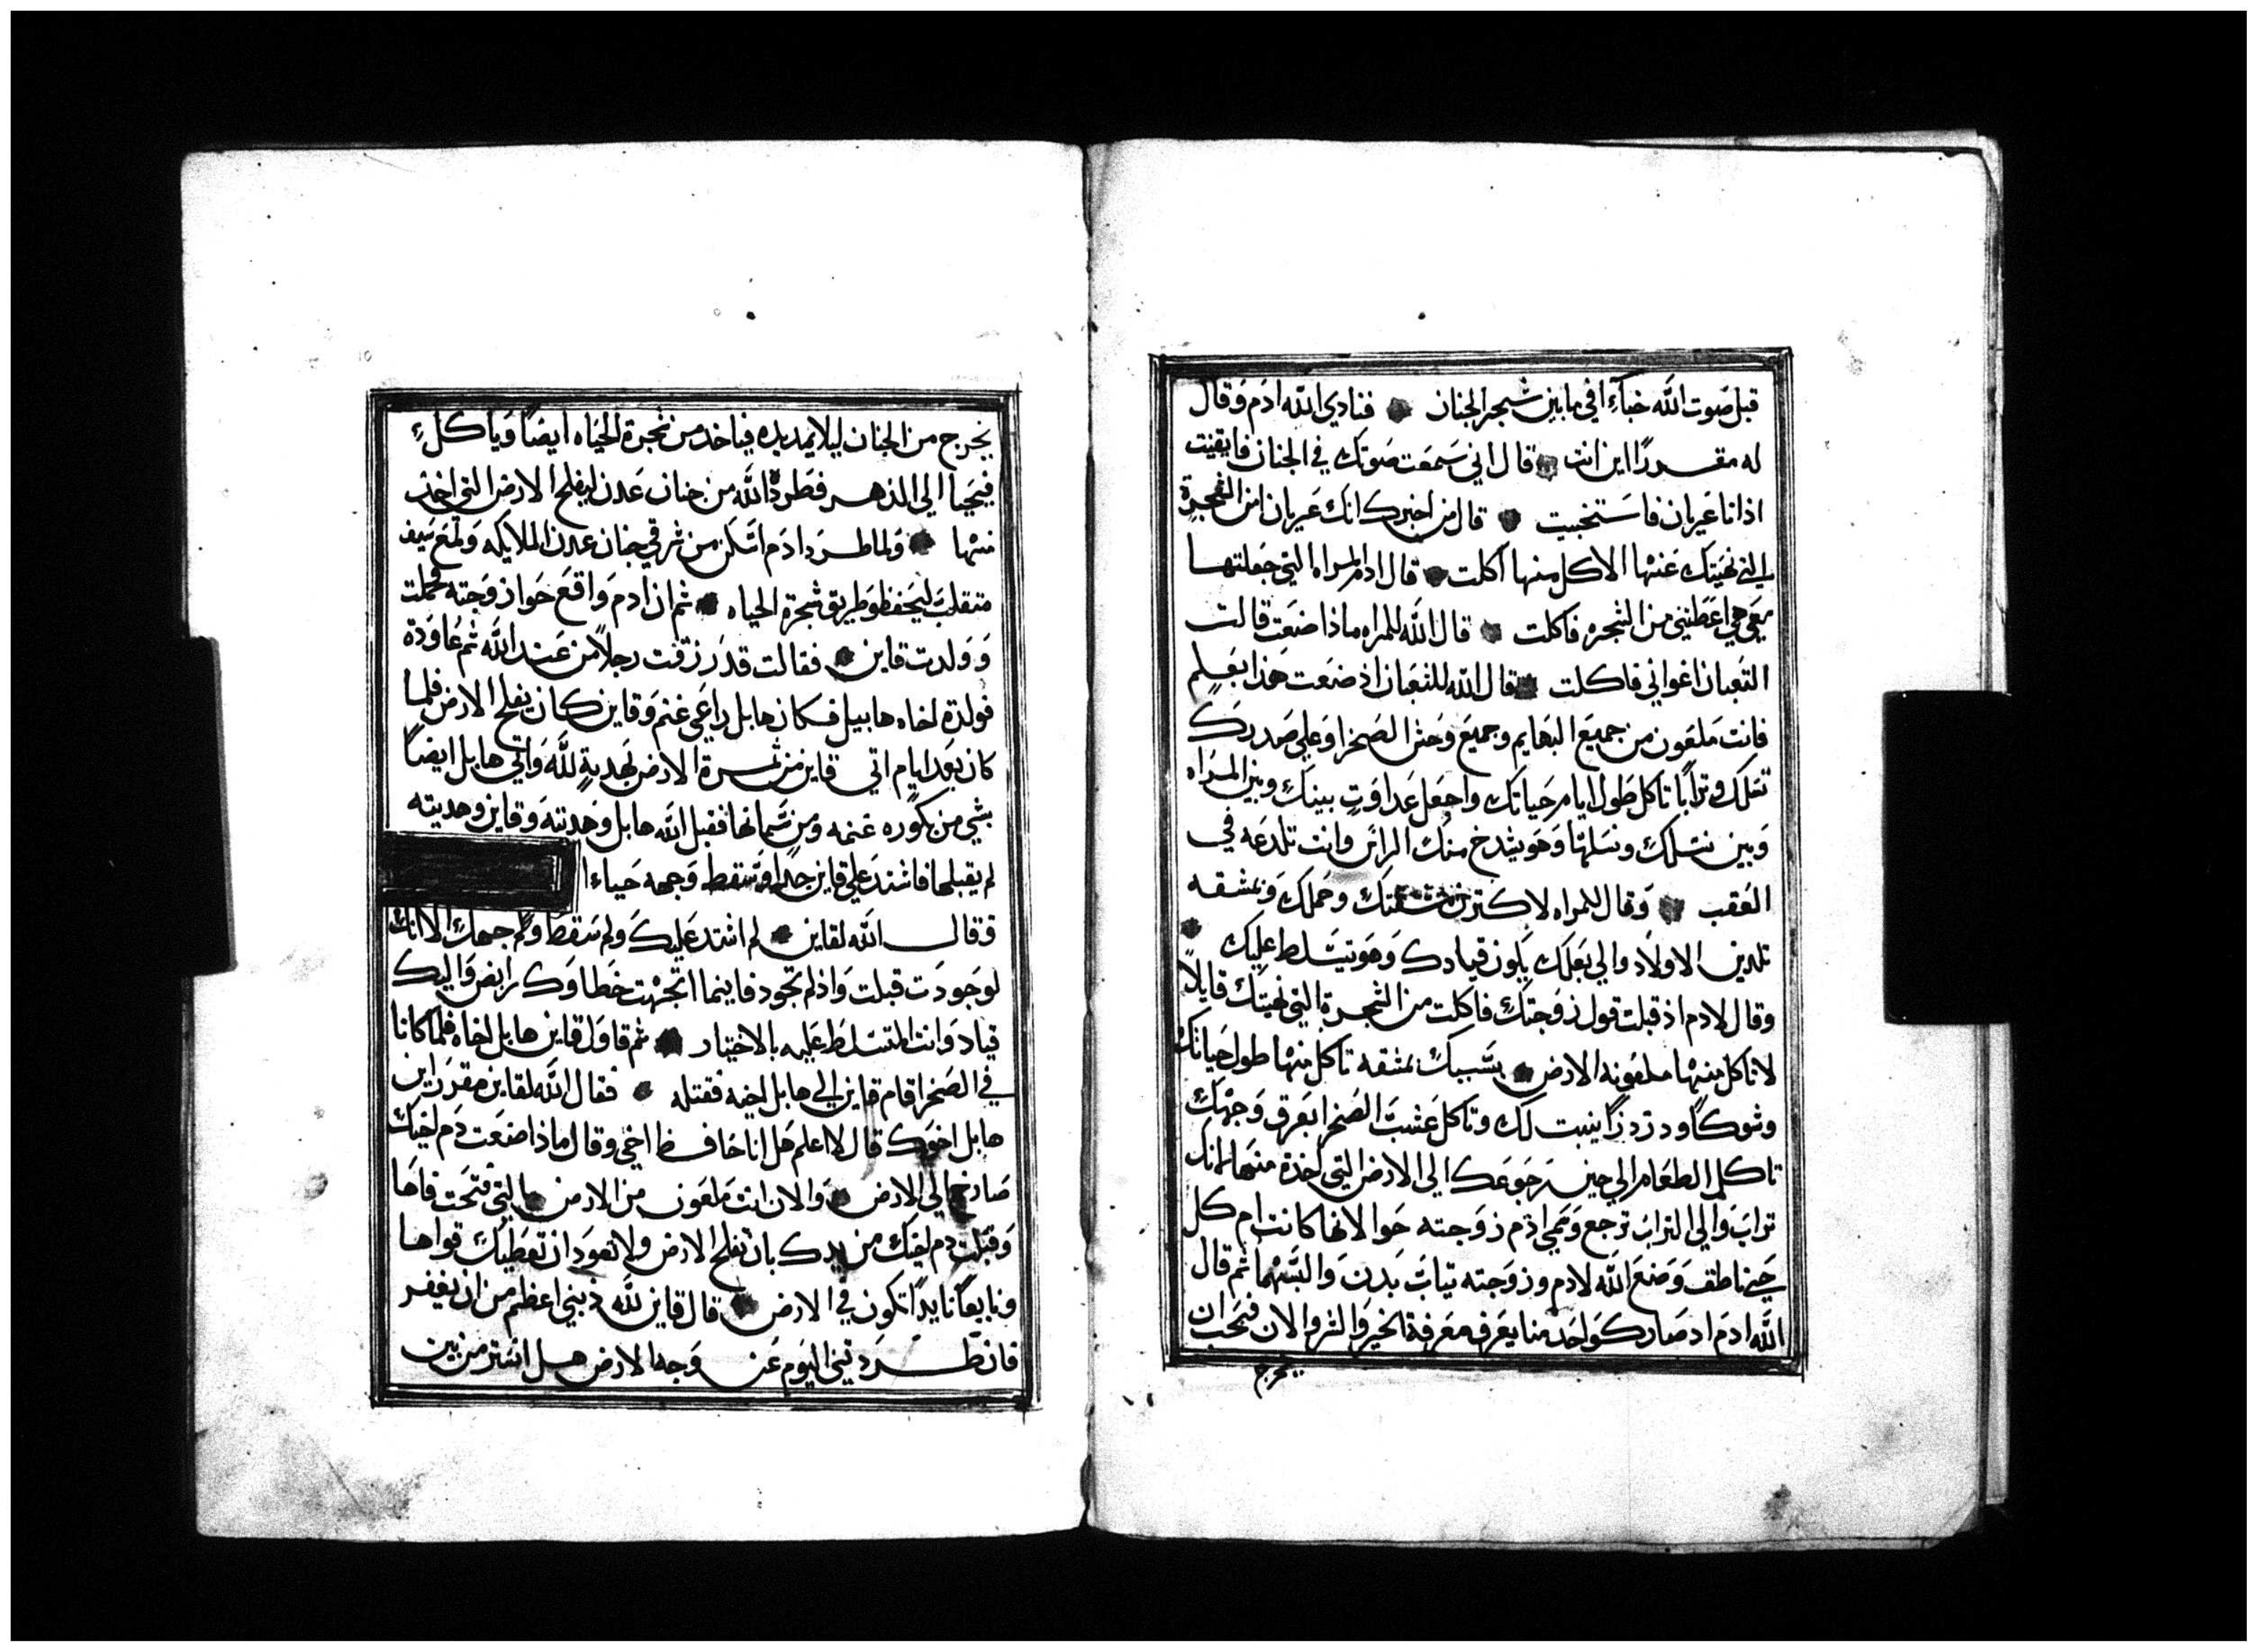 قبل صوت الله خباء في ما بين شجر الجنان فنادي الله ادم وقال
له مقررا اين انت قال اني سمعت صوتك في الجنان فايقنت
اذ انا عريان فاستخبيت قال من اخبرك انك عريان امن الشجرة
التي نهيتك عنها الاكل منها اكلت قال ادم المراه التي جعلتها
معي هي اعطتني من الشجره فاكلت قال الله للمراه ماذا صنعت قالت
الثعبان اغواني فاكلت قال الله للثعبان اذ صنعت هذا بعلم
فانت ملعون من جميع البهايم وجميع وحش الصحرا وعلي صدرك
تسلك وترابا تاكل طول ايام حياتك واجعل عداوت بينك وبين المراه
وبين نسلك ونسلها وهو يشدخ منك الراس وانت تلدعه في
العقب وقال للمراه لاكترن مشقتك وحملك وبمشقه
تلدين الاولاد والي بعلك يكون قيادك وهو يتسلط عليك
وقال لادم اذ قبلت قول زوجتك فاكلت من الشجرة التي نهيتك قايلا
لا تاكل منها ملعونه الارض بسببك بمشقه تاكل منها طول حياتك
وشوكا ودردرا ينبت لك وتاكل عشب الصحرا بعرق وجهك
تاكل الطعام الي حين رجوعك الي الارض التي اخذة منها لانك
تراب والي التراب ترجع وسمي ادم زوجته حوا لانها كانت ام كل
حي ناطق وصنع الله لادم وزوجته تياب بدن والبسهما ثم قال
الله ادم اد صار كواحد منا يعرف معرفة الخير والشر والان فيجب ان
يخرج
يخرج من الجنان ليلا يمد يده فياخد من شجرة الحياه ايضا وياكل
فيحيا الي الدهر فطرده الله من جنان عدن ليفلح الارض التي اخذ
منها ولما طرد ادم اسكن من شرقي جنان عدن الملايكه ولمع سيف
متقلب ليحفظو طريق شجرة الحياه ثم ان ادم واقع حوا زوجته فحملت
وولدت قاين فقالت قد رزقت رجلا من عند الله ثم عاودة
فولدة اخاه هابيل فكان هابل راعي غنم وقاين كان يفلح الارض فلما
كان بعد ايام اتي قاين من ثمرة الارض بهدية لله واتي هابل ايضا
بشي من بكوره غنمه ومن سمانها فقبل الله هابل وهديته وقاين وهديته
لم يقبلها فاشتد علي قاين جدا وسقط وجهه حياءا
وقال الله لقاين لم اشتد عليك ولم سقط وجهك الا انك
لو جودت قبلت واذ لم تجود فاينما اتجهت خطاوك رابض واليك
قياد وانت المتسلط عليه بالاختيار ثم قاول قاين هابل اخاه فلما كانا
في الصحرا قام قاين الي هابل اخيه فقتله فقال الله لقاين مقرر اين
هابل اخوك قال لا اعلم هل انا حافظ اخي وقال ماذا صنعت دم اخيك
صارخ الي الارض والان انت ملعون من الارض التي فتحت فاها
وقبلت دم اخيك من يدك بان تفلح الارض ولا تعود ان تعطيك قواها
ونايعا نايدا تكون في الارض قال قاين لله ذنبي اعظم من ان يغفر
فان طردتني اليوم عن وجه الارض هل استتر من بين